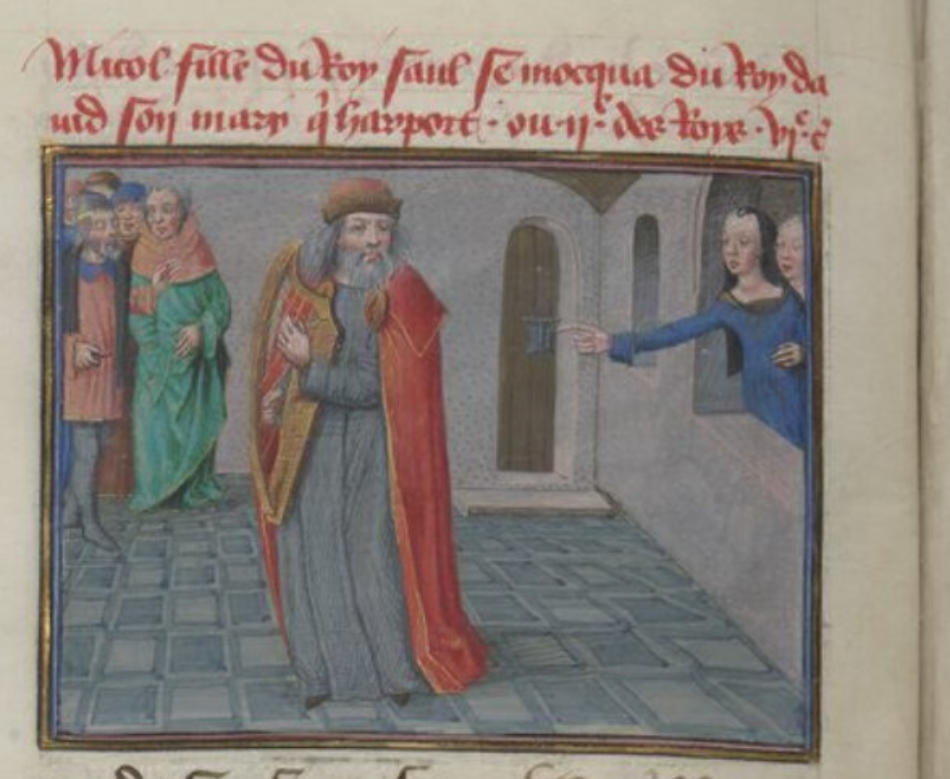 Micol fille du Roy saul se mocqua du Roy da
uid son mary q̄ harpoit · ou · ii · des Roix · vi · c